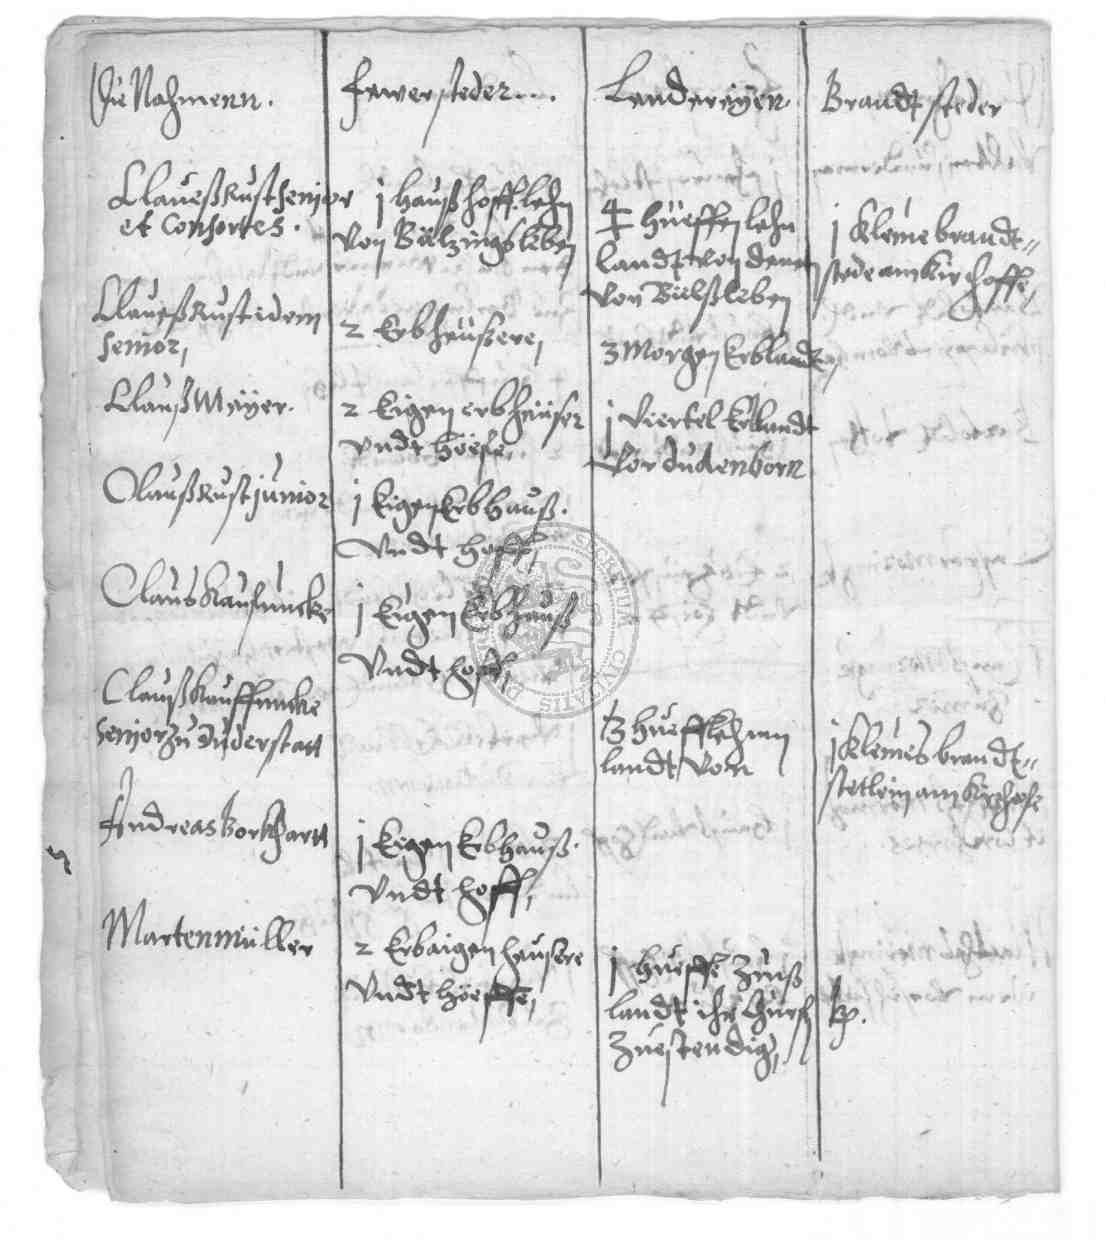 Die Nahmenn. Fewersteder.... Landereyen. Brandtsteder
Claueß Kust Senior
et Consortes.
j Hauß hoff lehn
von Bültzingsleben
4 Hueffen lehn
landt von denen
von Bülßleben
j kleine brandt„
stede am Kirchoffe,
Claueß Kust idem
Senior,
2 Erbheußere,
3 Morgen Erblandt,
Clauß Meyer.
2 Eigen erbheuser
vndt Höefe.
j viertel Erblandt
vor Dudenborn
Clauß Kust junior
j Eigen Erbhauß.
Vndt Hoff,
Claus Kaufunncke
j Eigen Erbhauß
Vndt hoff,
Clauß Kauffuncke
Senior zu Duderstatt
3 hueff lehnn
landt von
j kleines brandt„
stetlein am Kirchofe
Andreas Borkhartt
j Eigen Erbhauß.
Vndt hoff,
Marten Müller
2 Erbaigen heusere
Vndt Höeffe,
j Hueffe Zinß
landt ihr
Zuestendig,
SECRETUM CIVITATIS